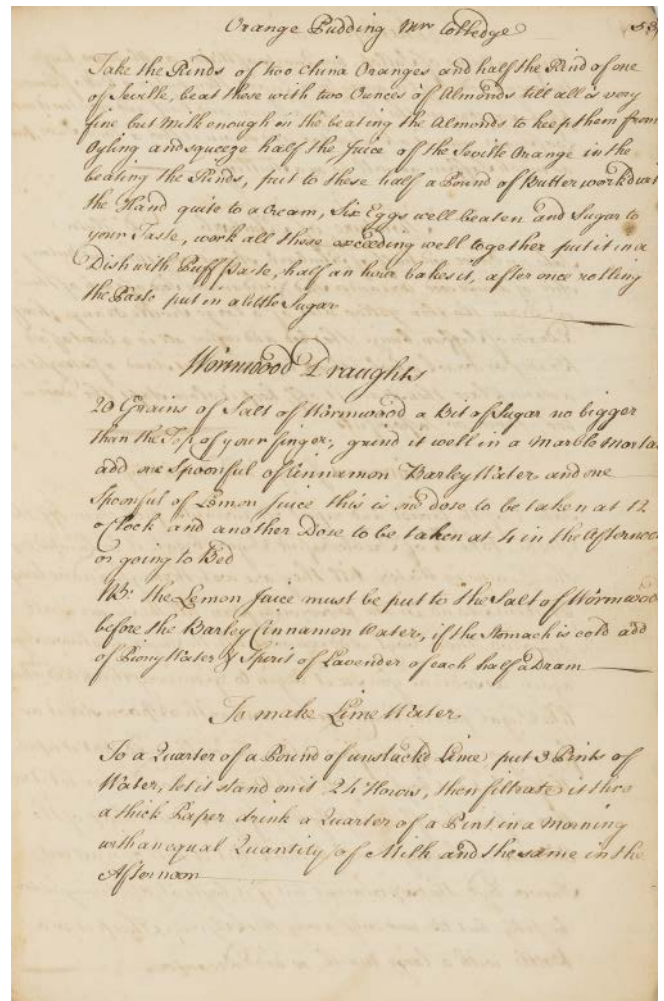 Orange Pudding Mrs Colledge (58)
Take the Rinds of two China Oranges and half the Rind of one
of Seville, beat these with two Ounces of Almonds till all is very
fine but Milk enough in the beating the Almonds to keep them from
Oyling and squeeze half the Juice of the Seville Orange in the
beating the Rinds, put to these half a Pound of Butter workd wi
the Hand quite to a Cream, Six Eggs well beaten and Sugar to
your Taste, work all these exceeding well together put it in a
Dish with Puff Paste, half an hour bakes it, after once rolling
the Paste put in a little Sugar
Wormwood Draughts
20 Grains of Salt of Wormwood a Bit of Sugar no bigger
than the Top of your finger, grind it well in a Marble Morta
add one Spoonful of Cinnamon Barley Water and one
Spoonful of Lemon Juice this is one dose to be taken at 12
o'Clock and another Dose to be taken at 4 in the Afternoo
or going to Bed
NB: the Lemon Juice must be put to the Salt of Wormwoo
before the Barley Cinnamon Water, if the Stomach is cold add
of Piony Water & Spirit of Lavender of each half a Dram
To make Lime Water
To a Quarter of a Pound of unslackd Lime put 3 Pints of
Water, let it stand on it 24 Hours, then filtrate it thro
a thick Paper drink a Quarter of a Pint in a Morning
with an equal Quantity of Milk and the same in the
Afternoon